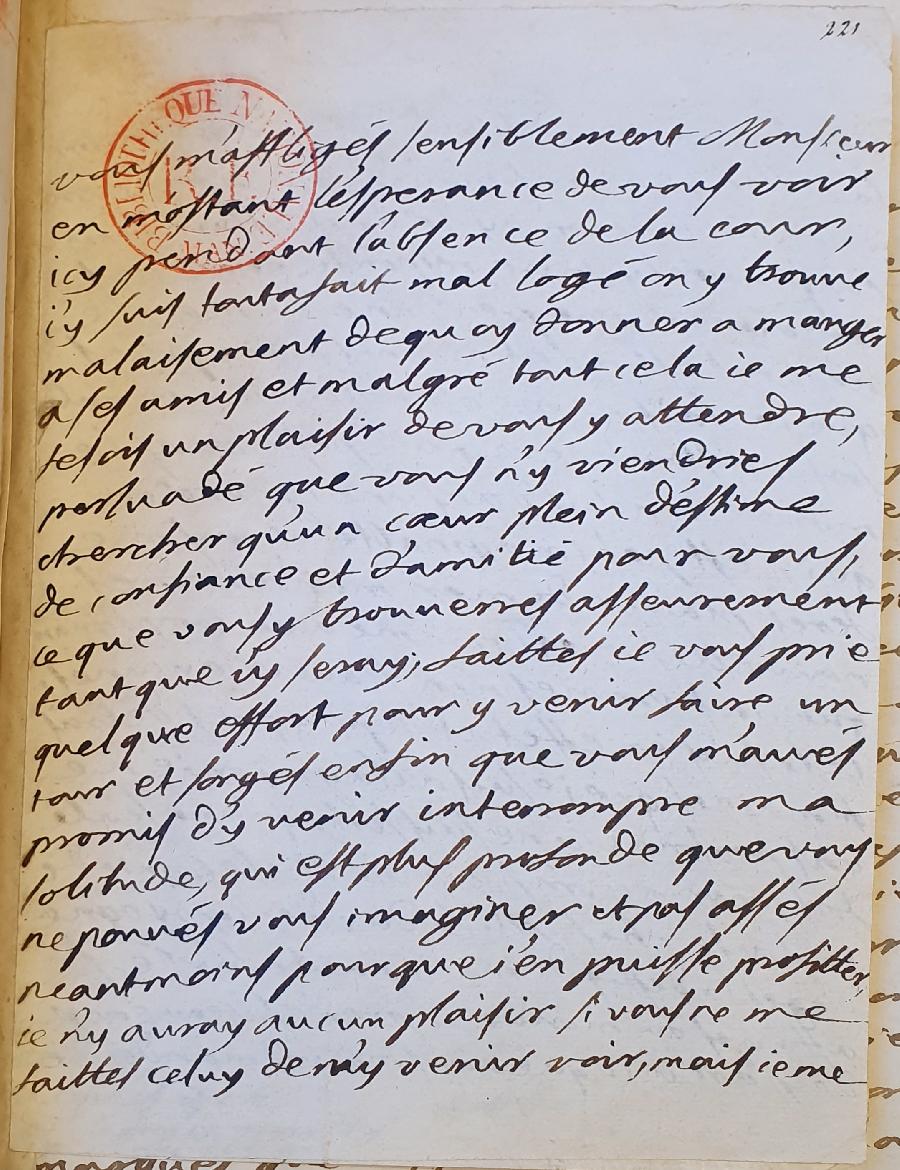 221
BIBLIOTHEQUE NATIONALE
R F
vous m'affligés sensiblement Monsieur
en m'ostant l'ésperance de vous voir
icy pendant l'absence de la cour,
i'y suis toutafait mal logé on y trouve
malaisement dequoy donner a manger
a ses amis et malgré tout cela ie me
fesois un plaisir de vous y attendre,
persuadé que vous n'y viendries
chercher qu'un cœur plein d'éstime
de confiance et d'amitié pour vous,
ce que vous y trouuerrés asseurement
tant que i'y seray; faittes ie vous prie
quelque effort pour y venir faire un
tour et songés enfin que vous m'aués
promis d'y venir interrompre ma
solitude, qui est plus profonde que vous
ne pouués vous imaginer et pas assés
neantmoins pour que i'en puisse profitter,
ie n'y auray aucun plaisir si vous ne me
faittes celuy de m'y venir voir, mais ie me